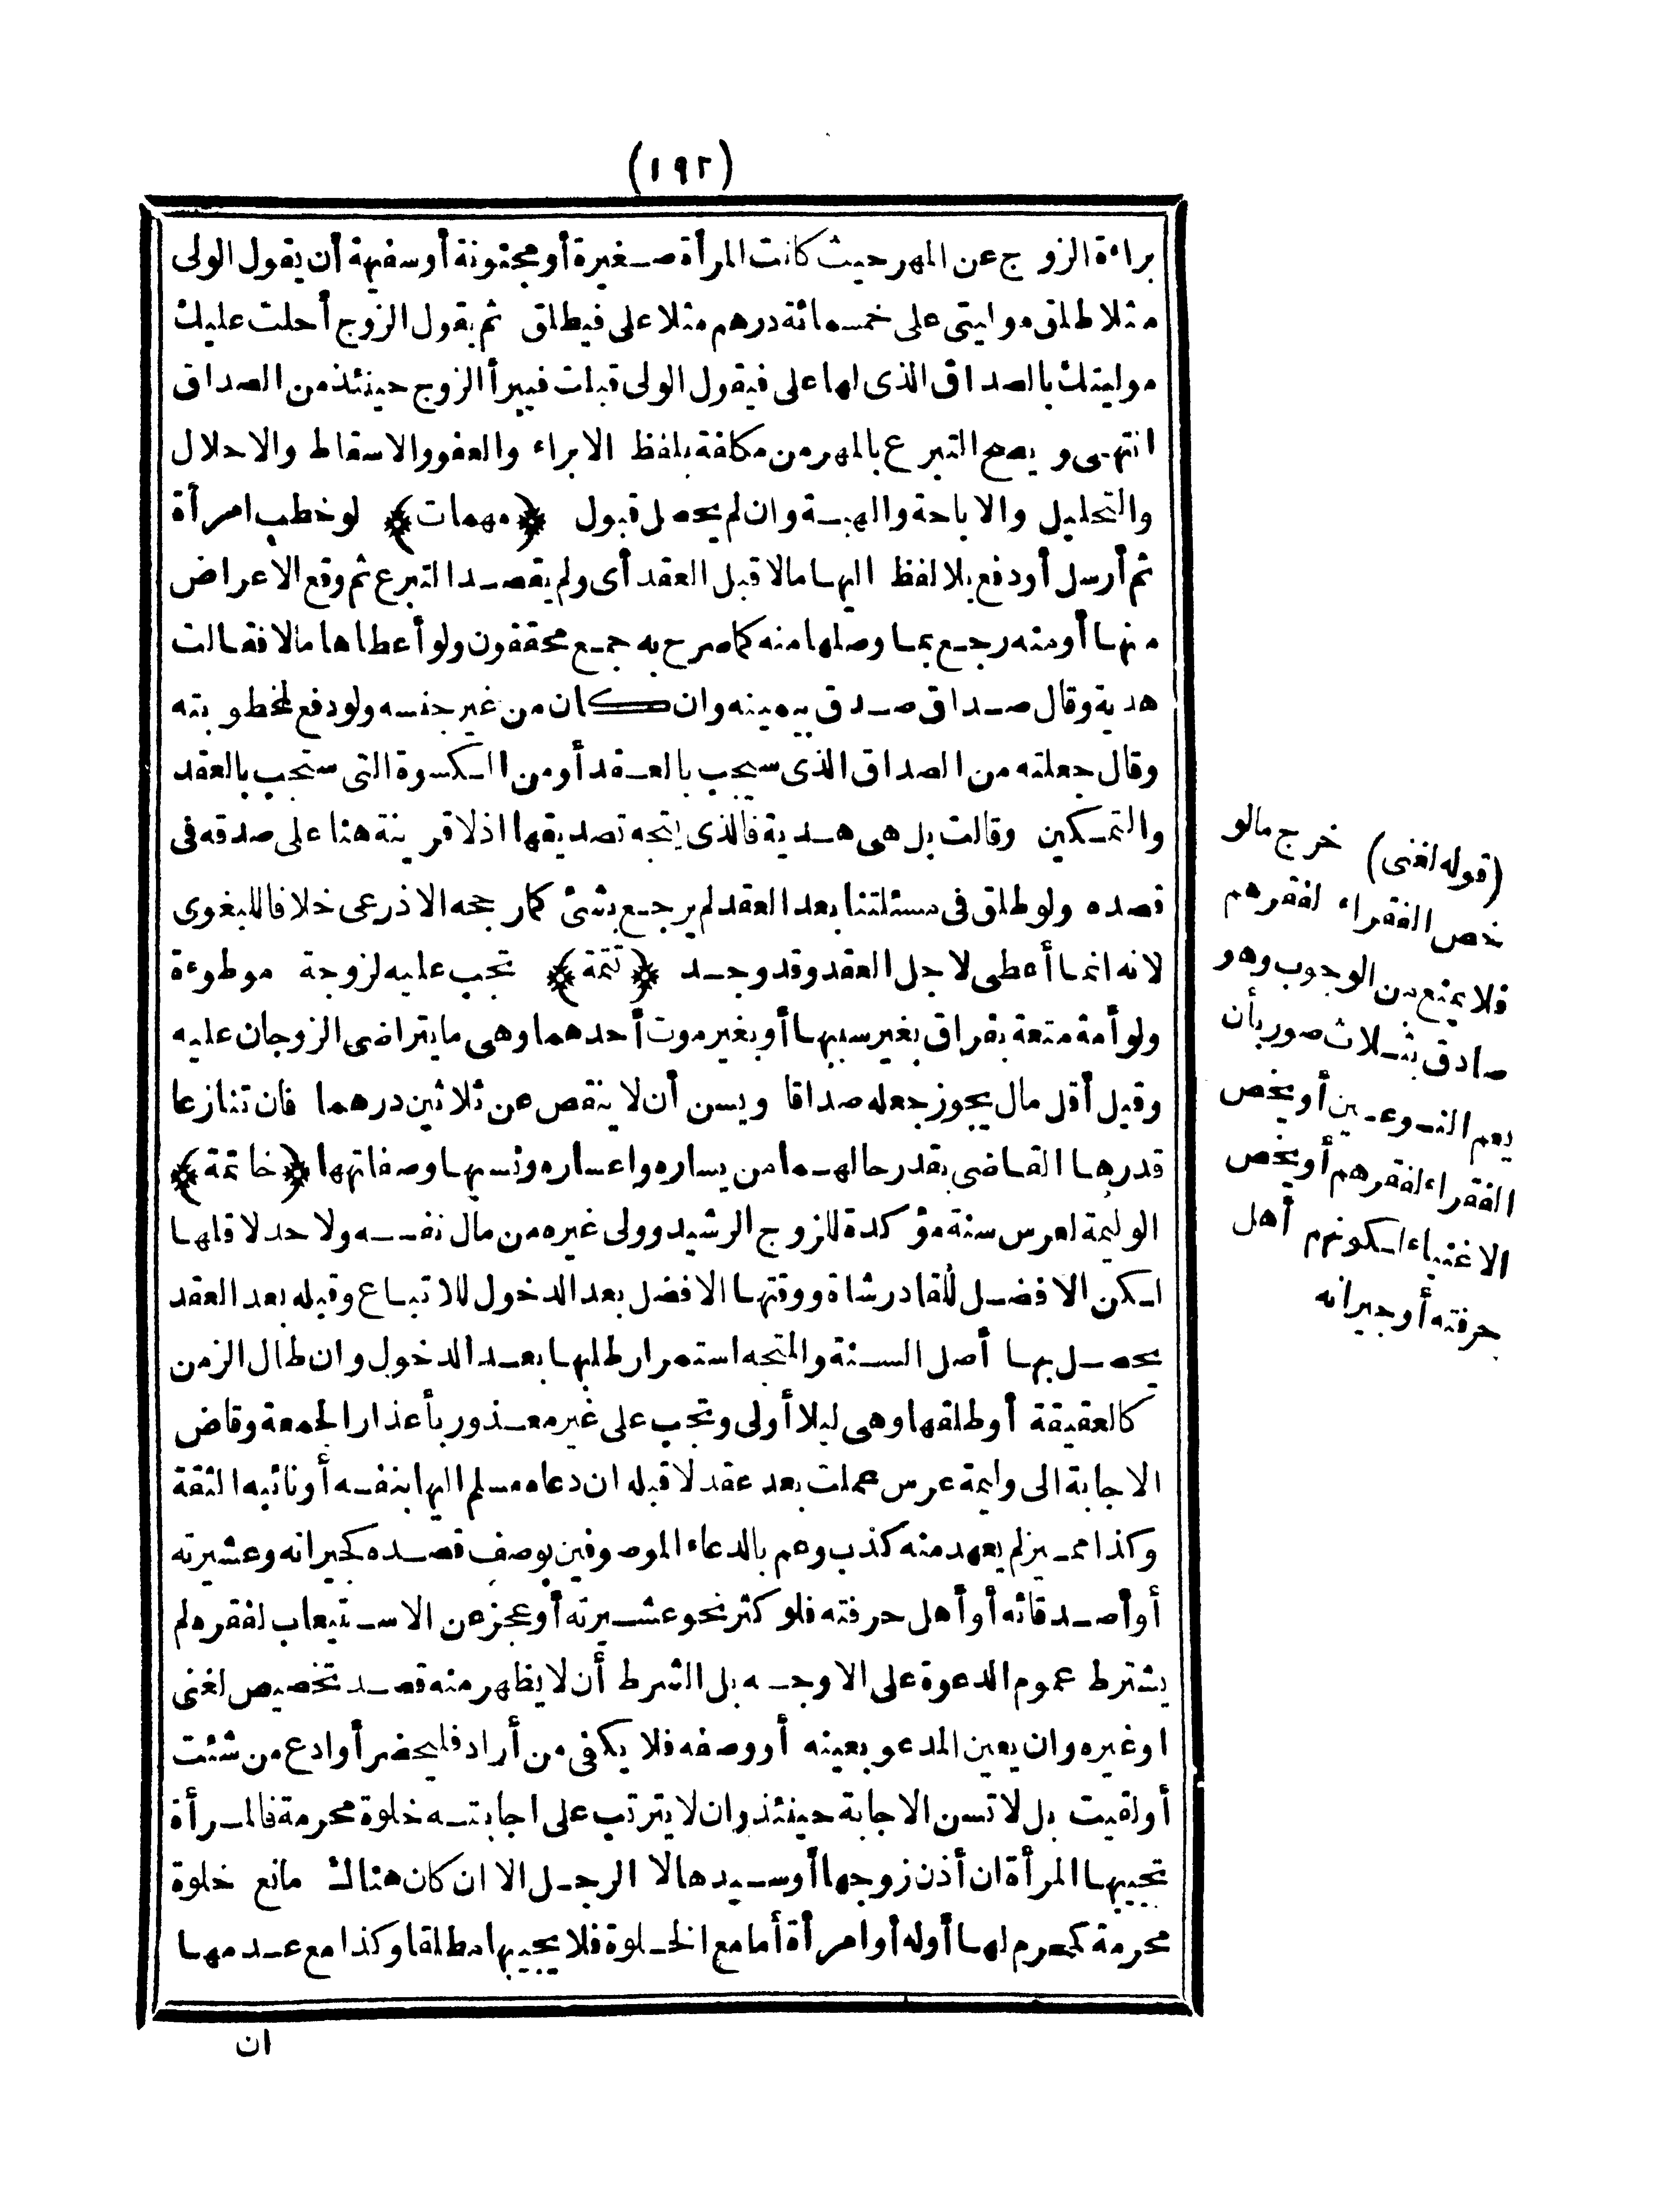 (١٩٢)
براءة الزوج عن المهر حيث كانت المرأة صغيرة أو مجنونة أو سفيهة أن يقول الولى
مثلا طلق موليتى على خمسمائة درهم مثلا على فيطلق ثم يقول الزوج أحلت عليك
موليتك بالصداق الذى لها على فيقول الولى قبلت فيبرأ الزوج حينئذ من الصداق
انتهى ويصح التبرع بالمهر من مكلفة بلفظ الابراء والعفو والاسقاط والاحلال
والتحليل والاباحة والهبة وان لم يحصل قبول ﴿مهمات﴾ لو خطب امرأة
ثم أرسل أو دفع بلا لفظ اليها مالا قبل العقد أى ولم يقصد التبرع ثم وقع الاعراض
منها أو منه رجع بما وصلها منه كما صرح به جمع محققون ولو أعطاها مالا فقالت
هدية وقال صداق صدق بيمينه وان كان من غير جنسه ولو دفع لمخطوبته
وقال جعلته من الصداق الذى سيجب بالعقد أو من الكسوة التى ستجب بالعقد
والتمكين وقالت بل هى هدية فالذى يتجه تصديقها اذ لا قرينة هنا على صدقه فى
قصده ولو طلق فى مسئلتنا بعد العقد لم يرجع بشئ كما رجحه الاذرعى خلافا للبغوى
لانه انما أعطى لاجل العقد وقد وجد ﴿تتمة﴾ تجب عليه لزوجة موطوءة
ولو أمة متعة بفراق بغير سببها أو بغير موت أحدهما وهى ما يتراضى الزوجان عليه
وقيل أقل مال يجوز جعله صداقا ويسن أن لا ينقص عن ثلاثين درهما فان تنازعا
قدرها القاضى بقدر حالهما من يساره واعساره ونسبها وصفاتها ﴿خاتمة﴾
الوليمة لعرس سنة مؤكدة للزوج الرشيد وولى غيره من مال نفسه ولا حد لاقلها
لكن الافضل للقادر شاة ووقتها الافضل بعد الدخول للاتباع وقبله بعد العقد
يحصل بها أصل السنة والمتجه استمرار طلبها بعد الدخول وان طال الزمن
كالعقيقة أو طلقها وهى ليلا أولى وتجب على غير معذور بأعذار الجمعة وقاض
الاجابة الى وليمة عرس عملت بعد عقد لا قبله ان دعاه مسلم اليها بنفسه أو نائبه الثقة
وكذا مميز لم يعهد منه كذب وعم بالدعاء الموصوفين بوصف قصده كجيرانه وعشيرته
أو أصدقائه أو أهل حرفته فلو كثر نحو عشيرته أو عجز عن الاستيعاب لفقره لم
يشترط عموم الدعوة على الاوجه بل الشرط أن لا يظهر منه قصد تخصيص لغنى
او غيره وان يعين المدعو بعينه أو وصفه فلا يكفى من أراد فليحضر أو ادع من شئت
أو لقيت بل لا تسن الاجابة حينئذ وان لا يترتب على اجابته خلوة محرمة فالمرأة
تجيبها المرأة ان أذن زوجها أو سيدها لا الرجل الا ان كان هناك مانع خلوة
محرمة كمحرم لها أو له أو امرأة أما مع الخلوة فلا يجيبها مطلقا وكذا مع عدمها
ان
(قوله لغنى) خرج ما لو
خص الفقراء لفقرهم
فلا يمنع من الوجوب وهو
صادق بثلاث صور بأن
يعم النوعين أو يخص
الفقراء لفقرهم أو يخص
الاغنياء لكونهم أهل
حرفته أو جيرانه